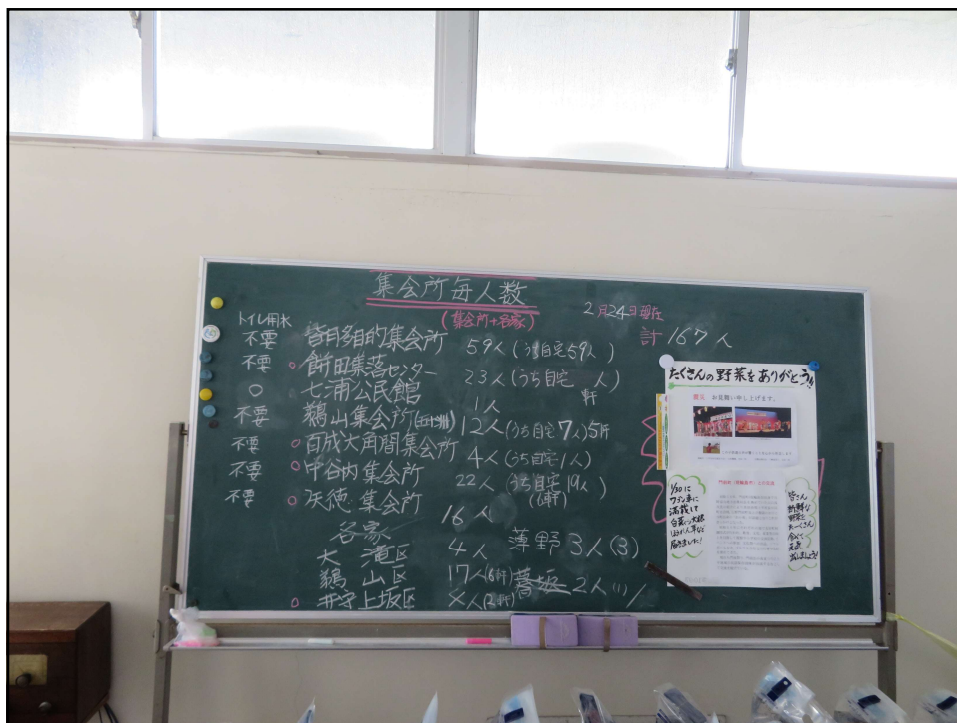 集会所毎人数
(集会所+各家)
2月24日現在
計 167人
トイレ用水
不要 皆月多目的集会所 59人(うち自宅59人)
不要 ○ 餅田集落センター 23人(うち自宅 人)
軒
○ 七浦公民館 1人
不要 鵜山集会所 12人(うち自宅7人)5軒
不要 ○ 百成大角間集会所 4人(うち自宅1人)
不要 ○ 中谷内集会所 22人(うち自宅19人)
不要 ○ 矢徳集会所 16人
各家
大滝区 4人
鵜山区 17人(6軒)
○ 井守上坂区 人(2軒)
薄野 3人(3)
2人(1)
たくさんの野菜をありがとう!!
震災 お見舞い申し上げます。
1/30に
ワゴン車に
満載して
白菜、大根
ほうれん草など
届きました!
皆さん
新鮮な
野菜を
たーくさん
食べて
元気
出しましょう!